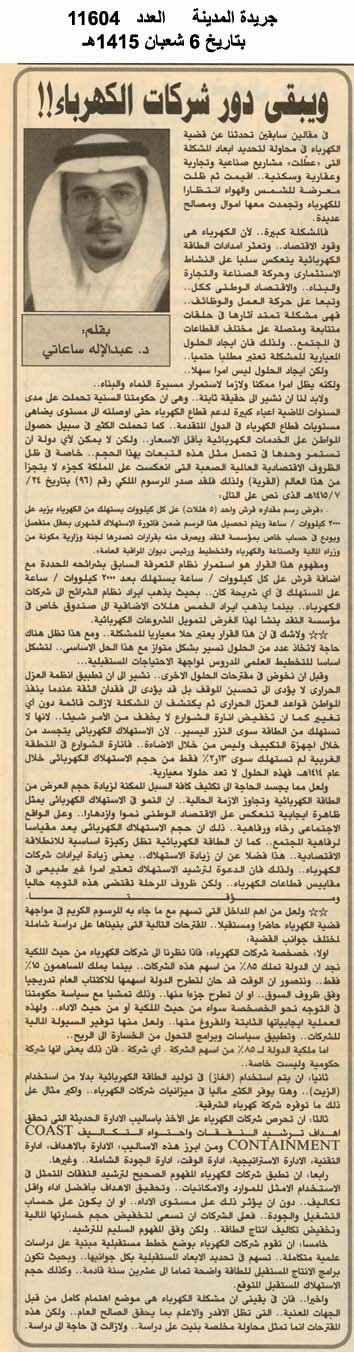 جريدة المدينة العدد 11604
بتاريخ 6 شعبان 1415هـ
ويبقى دور شركات الكهرباء!!
في مقالين سابقين تحدثنا عن قضية
الكهرباء في محاولة لتحديد ابعاد المشكلة
التي «عطّلت» مشاريع صناعية وتجارية
وعقارية وسكنية.. اقيمت ثم ظلت
معرضة للشمس والهواء انتظارا
للكهرباء وتجمدت معها اموال ومصالح
عديدة.
فالمشكلة كبيرة.. لأن الكهرباء هي
وقود الاقتصاد.. وتعثر امدادات الطاقة
الكهربائية ينعكس سلبا على النشاط
الاستثماري وحركة الصناعة والتجارة
والبناء.. والاقتصاد الوطني ككل..
وتبعا على حركة العمل والوظائف..
فهي مشكلة تمتد آثارها في حلقات
متتابعة ومتصلة على مختلف القطاعات
في المجتمع.. ولذلك فان ايجاد الحلول
المعيارية للمشكلة تعتبر مطلبا حتميا..
ولكن ايجاد الحلول ليس امرا سهلا..
ولكنه يظل امرا ممكنا ولازما لاستمرار مسيرة النماء والبناء..
بقلم:
د. عبدالإله ساعاتي
ولابد لنا ان نشير الى حقيقة ثابتة.. وهي ان حكومتنا السنية تحملت على مدى
السنوات الماضية اعباء كبيرة لدعم قطاع الكهرباء حتى اوصلته الى مستوى يضاهي
مستويات قطاع الكهرباء في الدول المتقدمة.. كما تحملت الكثير في سبيل حصول
المواطن على الخدمات الكهربائية باقل الاسعار.. ولكن لا يمكن لأي دولة ان
تستمر وحدها في تحمل مثل هذه التبعات بهذا الحجم.. خاصة في ظل
الظروف الاقتصادية العالمية الصعبة التي انعكست على المملكة كجزء لا يتجزأ
من هذا العالم (القرية) ولذلك فلقد صدر المرسوم الملكي رقم (٩٦) بتاريخ ٢٤/
٧/١٤١٥هـ الذي نص على التالي:
«فرض رسم مقداره قرش واحد (٥ هللات) على كل كيلووات يستهلك من الكهرباء يزيد على
٢٠٠٠ كيلووات / ساعة ويتم تحصيل هذا الرسم ضمن فاتورة الاستهلاك الشهري بحقل منفصل
ويودع في حساب خاص بمؤسسة النقد ويصرف منه بقرارات تصدرها لجنة وزارية مكونة من
وزراء المالية والصناعة والكهرباء والتخطيط ورئيس ديوان المراقبة العامة».
ومفهوم هذا القرار هو استمرار نظام التعرفة السابق بشرائحه المحددة مع
اضافة قرش على كل كيلووات / ساعة يستهلك بعد ٢٠٠٠ كيلووات / ساعة
على المستهلك في أي شريحة كان.. بحيث يذهب ايراد نظام الشرائح الى شركات
الكهرباء.. بينما يذهب ايراد الخمس هللات الاضافية الى صندوق خاص في
مؤسسة النقد ينشأ لهذا الغرض لتمويل المشروعات الكهربائية.
☆☆ ولاشك في ان هذا القرار يعتبر حلا معياريا للمشكلة.. ومع هذا تظل هناك
حاجة لاتخاذ عدد من الحلول تسير بشكل متواز مع هذا الحل الاساسي.. لتشكل
اساسا للتخطيط العلمي المدروس لمواجهة الاحتياجات المستقبلية...
وقبل ان نخوض في مقترحات الحلول الاخرى.. نشير الى ان تطبيق انظمة العزل
الحراري لا يؤدي الى تحسين الموقف بل قد يؤدي الى فقدان الثقة عندما ينفذ
المواطن قواعد العزل الحراري ثم يكتشف ان المشكلة لازالت قائمة دون أي
تغيير كما ان تخفيض انارة الشوارع لا يخفف من الأمر شيئا.. لانها لا
تستهلك من الطاقة سوى النزر اليسير.. لأن الاستهلاك الكهربائي يتجسد من
خلال اجهزة التكييف وليس من خلال الاضاءة.. فانارة الشوارع في المنطقة
الغربية لم تستهلك سوى ٢ر١٣٪ فقط من حجم الاستهلاك الكهربائي خلال
عام ١٤١٤هـ، فهذه الحلول لا تعد حلولا معيارية.
ولعل مما يسجد الحاجة الى تكثيف كافة السبل الممكنة لزيادة حجم العرض من
الطاقة الكهربائية وتجاوز الازمة الحالية.. ان النمو في الاستهلاك الكهربائي يمثل
ظاهرة ايجابية تنعكس على الاقتصاد الوطني نموا وازدهارا.. وعلى الواقع
الاجتماعي رخاء ورفاهية.. ذلك ان حجم الاستهلاك الكهربائي يعد مقياسا
لرفاهية المجتمع.. كما ان الطاقة الكهربائية تظل ركيزة اساسية للانطلاقة
الاقتصادية.. هذا فضلا عن ان زيادة الاستهلاك.. يعني زيادة ايرادات شركات
الكهرباء.. ولذلك فان الدعوة لترشيد الاستهلاك تعتبر امرا غير طبيعي في
مقاييس قطاعات الكهرباء.. ولكن ظروف المرحلة تقتضي هذه التوجه حاليا
ومؤقتا.
☆☆ ولعل من اهم المداخل التي تسهم مع ما جاء به المرسوم الكريم في مواجهة
قضية الكهرباء حاضرا ومستقبلا.. المقترحات التالية التي بنيناها على دراسة شاملة
لمختلف جوانب القضية:
اولا: خصخصة شركات الكهرباء: فاذا نظرنا الى شركات الكهرباء من حيث الملكية
نجد ان الدولة تملك ٨٥٪ من اسهم هذه الشركات.. بينما يملك المساهمون ١٥٪
فقط.. ونتصور ان الوقت قد حان لتطرح الدولة اسهمها للاكتتاب العام تدريجيا
وفق ظروف السوق.. او ان تطرح جزءا منها.. وذلك تمشيا مع سياسة حكومتنا
في التوجه نحو الخصخصة سواء من حيث الملكية او من حيث الاداء.. ولهذه
العملية ايجابياتها الثابتة والمفروغ منها.. ولعل منها توفير السيولة المالية
للشركات.. وتطبيق سياسات وبرامج التحول من الخسارة الى الربح..
اما ملكية الدولة لـ ٨٥٪ من اسهم الشركة . أي شركة . فان ذلك يعني انها شركة
حكومية وليست خاصة..
ثانيا: ان يتم استخدام (الغاز) في توليد الطاقة الكهربائية بدلا من استخدام
(الزيت).. وهذا يوفر الكثير ماليا في ميزانيات شركات الكهرباء.. واكبر مثال على
ذلك ما توفره شركة كهرباء الشرقية.
ثالثا: ان تحرص شركات الكهرباء على الأخذ باساليب الادارة الحديثة التي تحقق
اهداف ترشيد النفقات واحتواء التكاليف COAST
CONTAINMENT ومن ابرز هذه الاساليب: الادارة بالاهداف، ادارة
التقنية، الادارة الاستراتيجية، ادارة الوقت، ادارة الجودة الشاملة.. وغيرها.
رابعا: ان تطبق شركات الكهرباء المفهوم الصحيح لترشيد النفقات المتمثل في
الاستخدام الامثل للموارد والامكانيات.. وتحقيق الاهداف بافضل اداء واقل
تكاليف.. دون ان يؤثر ذلك على مستوى الاداء.. او ان يكون على حساب
التشغيل والجودة.. فعلى الشركات ان تسعى لتخفيض حجم خسارتها المالية
وتخفيض تكاليف انتاج الطاقة.. ولكن وفق المفهوم السليم للترشيد.
خامسا: ان تقوم شركات الكهرباء بوضع خطط مستقبلية مبنية على دراسات
علمية متكاملة.. تسهم في تحديد الابعاد المستقبلية بكل جوانبها.. وبحيث تكون
برامج الانتاج المستقبلي للطاقة واضحة تماما الى عشرين سنة قادمة.. وكذلك حجم
الاستهلاك المستقبلي المتوقع.
واخيرا.. فان في يقيني ان مشكلة الكهرباء هي موضع اهتمام كامل من قبل
الجهات المعنية.. التي تظل الاقدر والاعلم بما يحقق الصالح العام.. ولكن هذه
المقترحات انما تمثل محاولة مخلصة بنيت على دراسة.. ولازالت في حاجة الى دراسة.